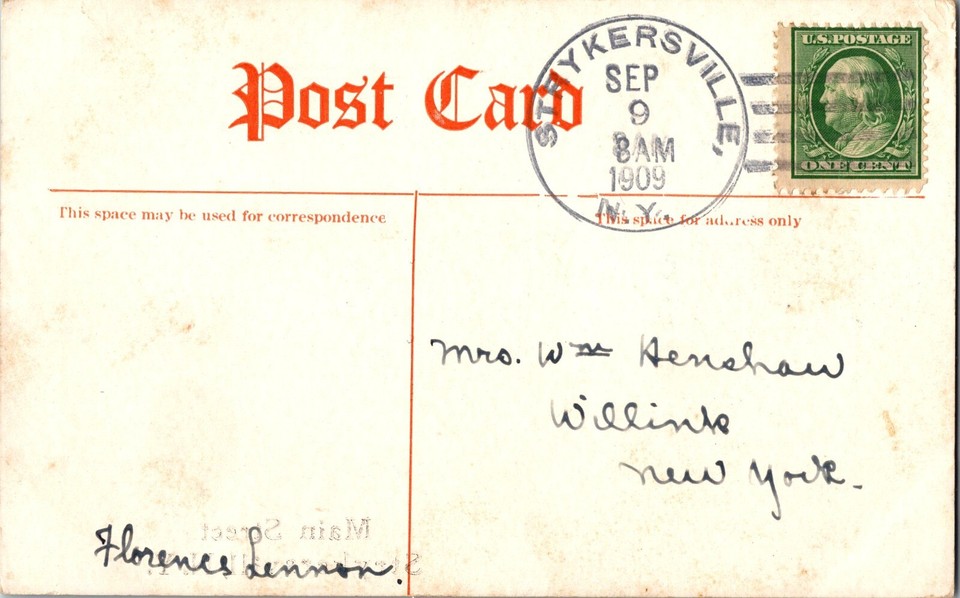 Post Card
STRYKERSVILLE,
SEP
9
8AM
1909
N.Y.
U.S. POSTAGE
ONE CENT
This space may be used for correspondence
This space for address only
Mrs. Wm Henshaw
Willink
New York.
Main Street
Florence Lennon.